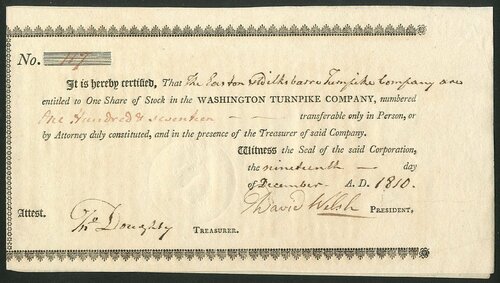 No. 117
It is hereby certified, That The Easton & Wilksbarre Turnpike Company are
entitled to One Share of Stock in the WASHINGTON TURNPIKE COMPANY, numbered
One Hundred & seventeen — — transferable only in Person, or
by Attorney duly constituted, and in the presence of the Treasurer of said Company.
Witness the Seal of the said Corporation,
the nineteenth — day
of December - A. D. 1810.
David Welsh PRESIDENT,
Attest.
Thos Doughty TREASURER.